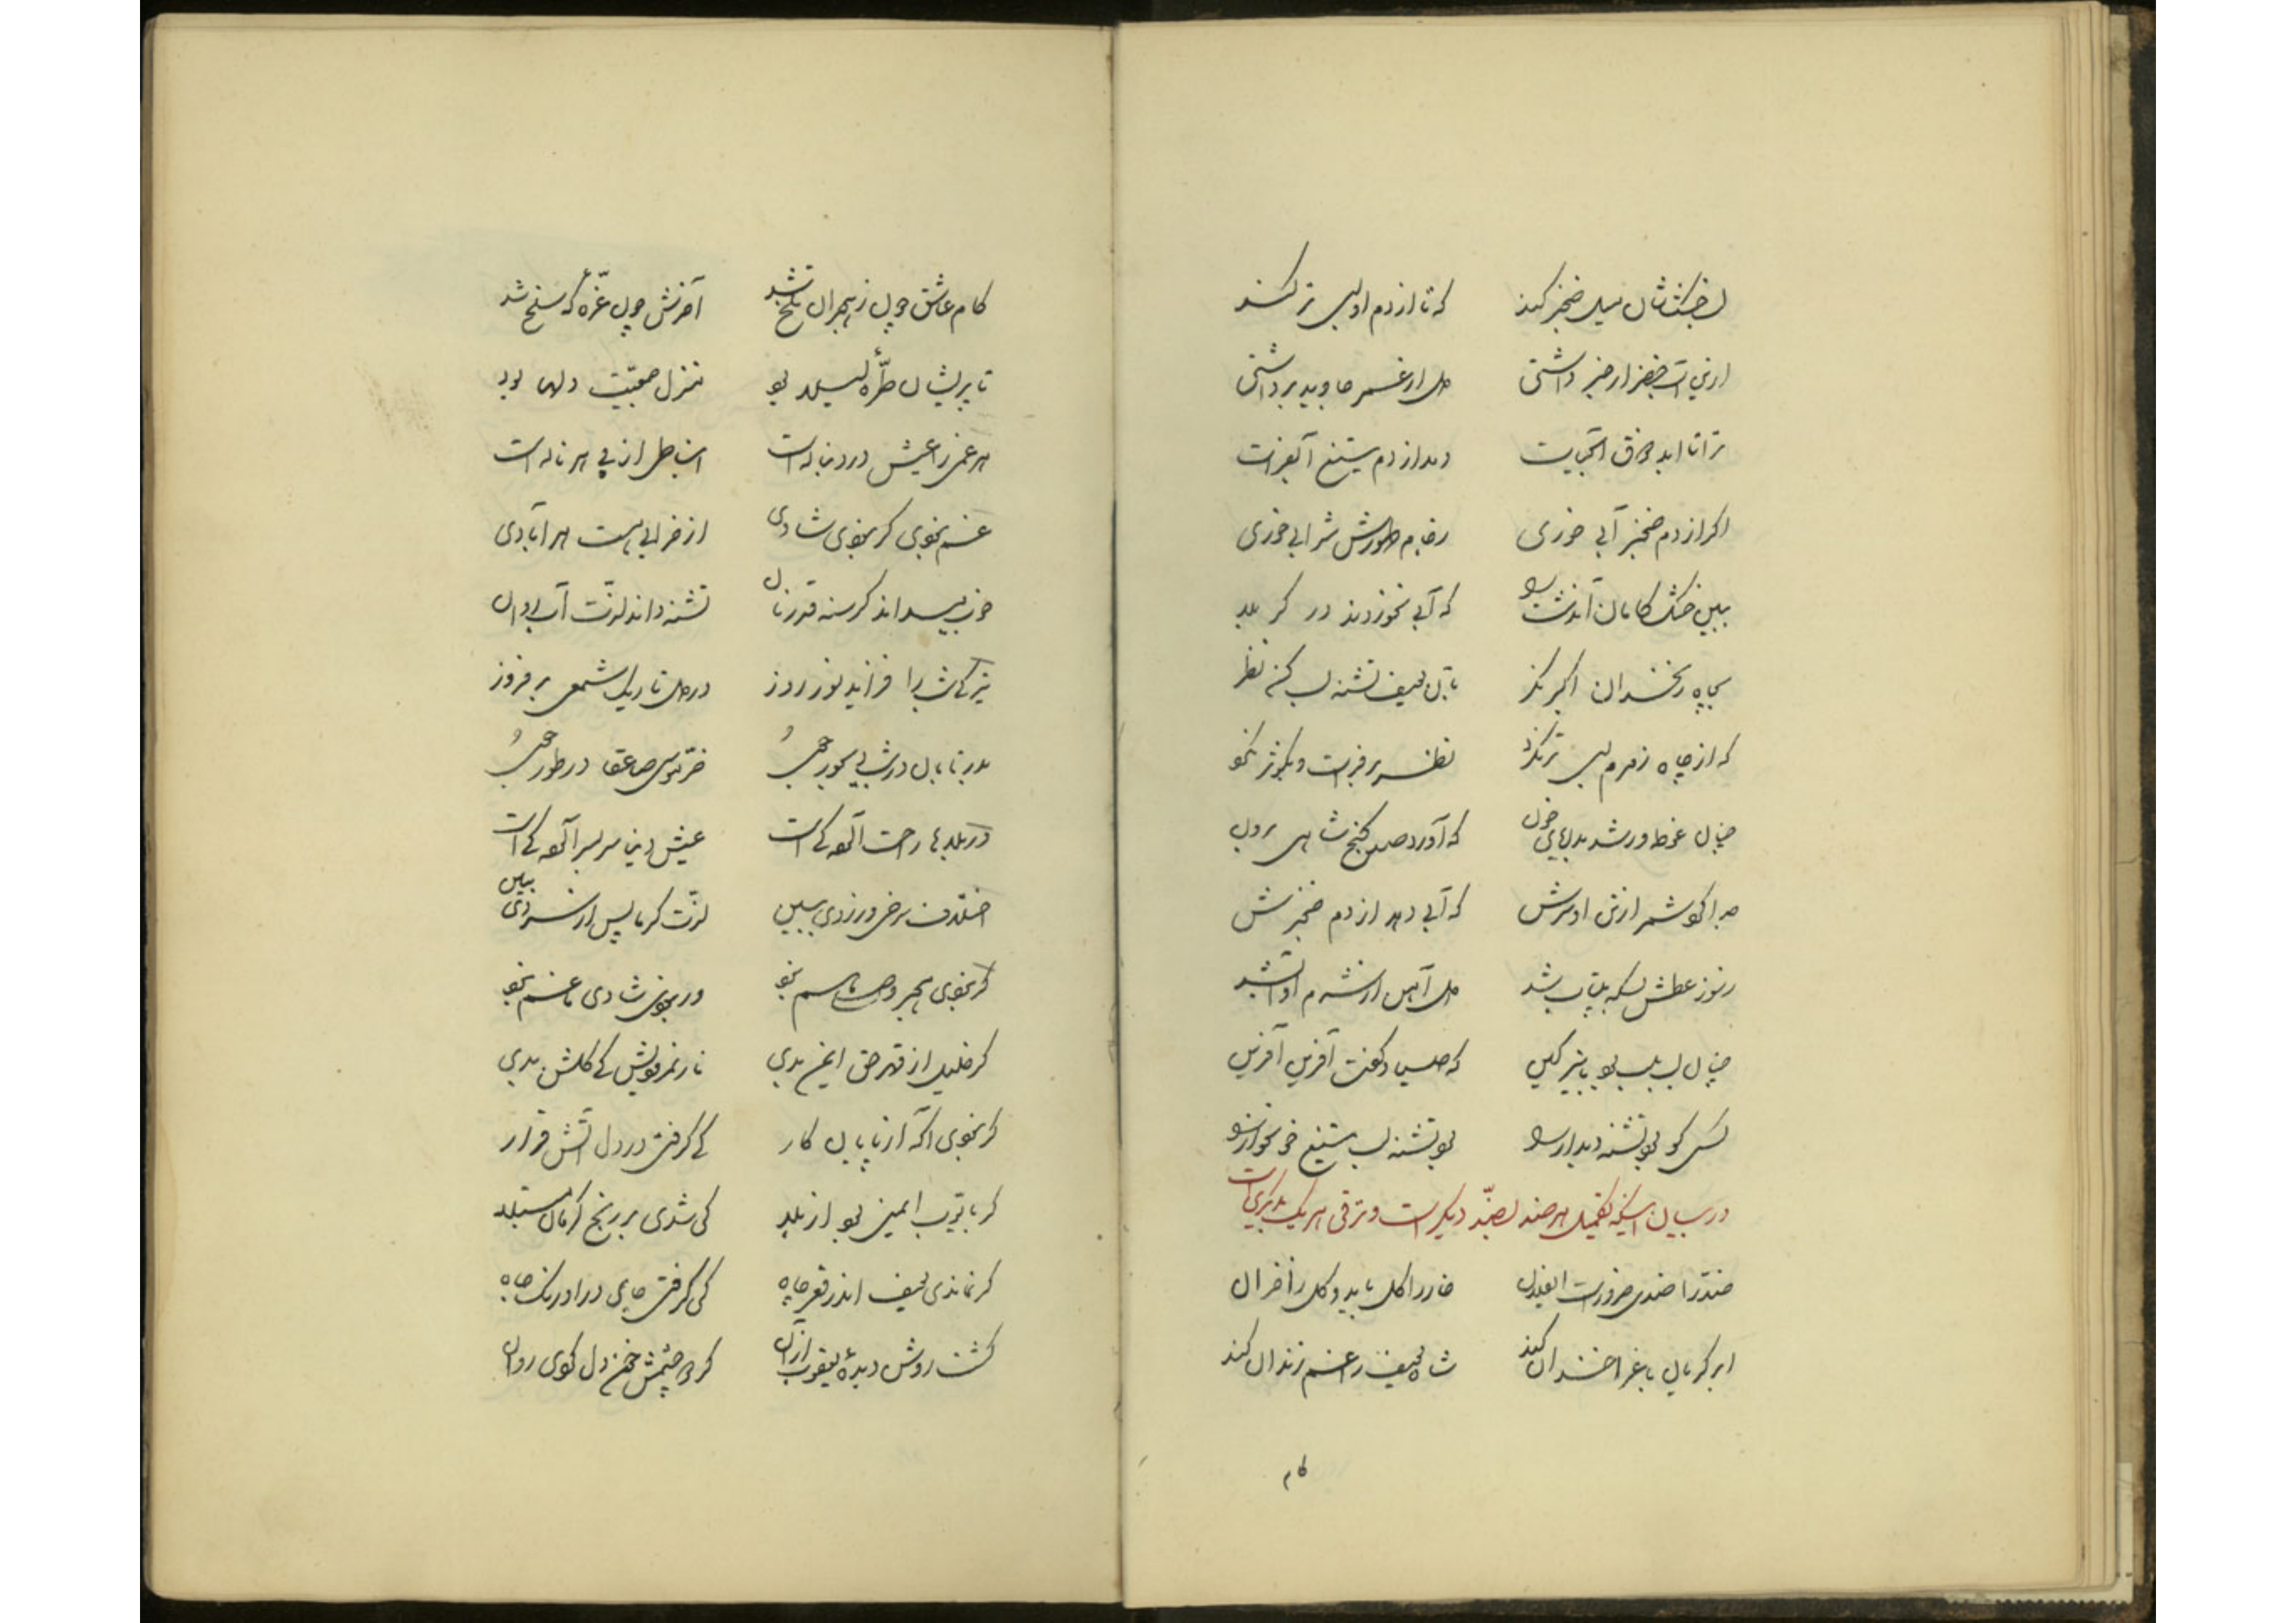 لب خشکشان میل خنجر کند که تا از دم او لبی تر کند
ازین آب خضر ار خبر داشتی دل از عمر جاوید برداشتی
ترا تا ابد ذوق آب حیات دهد از دم تیغ آب فرات
اگر از دم خنجر آبی خوری
ببین خشک کامان که آبی نخوردند در کربلا
بچاه زنخدان اکبر نگر بآن یوسف تشنه لب کن نظر
که از چاه زمزم لبی تر نکرد نظر بر فرات و بکوثر نکرد
چنان غوطه‌ور شد بدریای خون که آورد صد گنج شاهی برون
که آبی دهد از دم خنجرش
ز سوز عطش بسکه بیتاب شد دل آهن از شرم او آب شد
چنان لب بلب بود با تیر کین که صیاد گفت آفرین آفرین
کسی کو بود تشنه دیدار او بود تشنه لب تیغ خونخوار او
در بیان اینکه تکمیل هر ضد بضدّ دیگر است و ترقی هر یک بدیگری است
ضد را ضدی ضرور است ای فلان خار را گل باید و گل را خزان
ابر گریان باغ را خندان کند شاه یوسف را غم زندان کند
کام
کام عاشق چون ز هجران تلخ شد آخرش چون غرّه که سلخ شد
تا پریشان طرّه لیلی بود منزل جمعیّت دلها بود
هر غمی را عیش در دنباله است انبساطی از پی هر ناله است
غم بجوی گر بجوی شادی از خرابی هست هر آبادی
خوب میداند گرسنه قدر نان تشنه داند لذّت آب روان
تیرگی شب را فزاید نور روز در دل تاریک شمعی بر فروز
بدر تابان در شب دیجور جو خرّ موسی صاعقا در طور جو
در بلاها راحت آلوده کی است عیش دنیا سر بسر آلوده کی است
اختلاف سرخی و زردی ببین لذّت گرما پس از سردی ببین
گر بجوی هجر وصل هم بجو ور بجوی شادی با غم بجو
گر خلیل از قهر حق ایمن بدی نار نمرودیش کی گلشن بدی
گر بجوی آگه از پایان کار کی گرفتی در دل آتش قرار
گر بایّوب ایمنی بود از بلا کی شدی بر رنج کرمان مبتلا
گر نماندی یوسف اندر قعر چاه کی گرفتی جای در اورنگ جاه
گشت روشن دیدۀ یعقوب از آن کز دو چشمش خون دل کردی روان